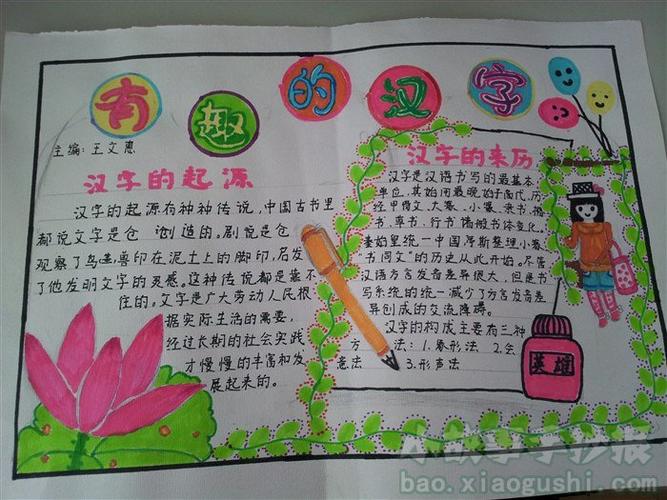 有趣的汉字
主编:王文惠
汉字的起源
汉字的起源有种种传说,中国古书里
都说文字是仓 创造的。剧说是仓
观察了鸟迹兽印在泥土上的脚印,启发
了他发明文字的灵感。这种传说都是靠不
住的,文字是广大劳动人民根
据实际生活的需要,
经过长期的社会实践
才慢慢的丰富和发
展起来的。
汉字的来历
汉字是汉语书写的最基本
单位,其始用最晚始于商代,历
经甲骨文、大篆、小篆、隶书、楷
书、草书、行书诸般书体变化。
秦始皇统一中国,李斯整理小篆
"书同文"的历史从此开始。尽管
汉语方言发音差异很大,但是书
写系统的统一减少了方言发音差
异创成的交流障碍。
汉字的构成主要有三种
方 法:1.象形法 2.会
意法 3.形声法
英雄
小故事手抄报
bao.xiaogushi.com